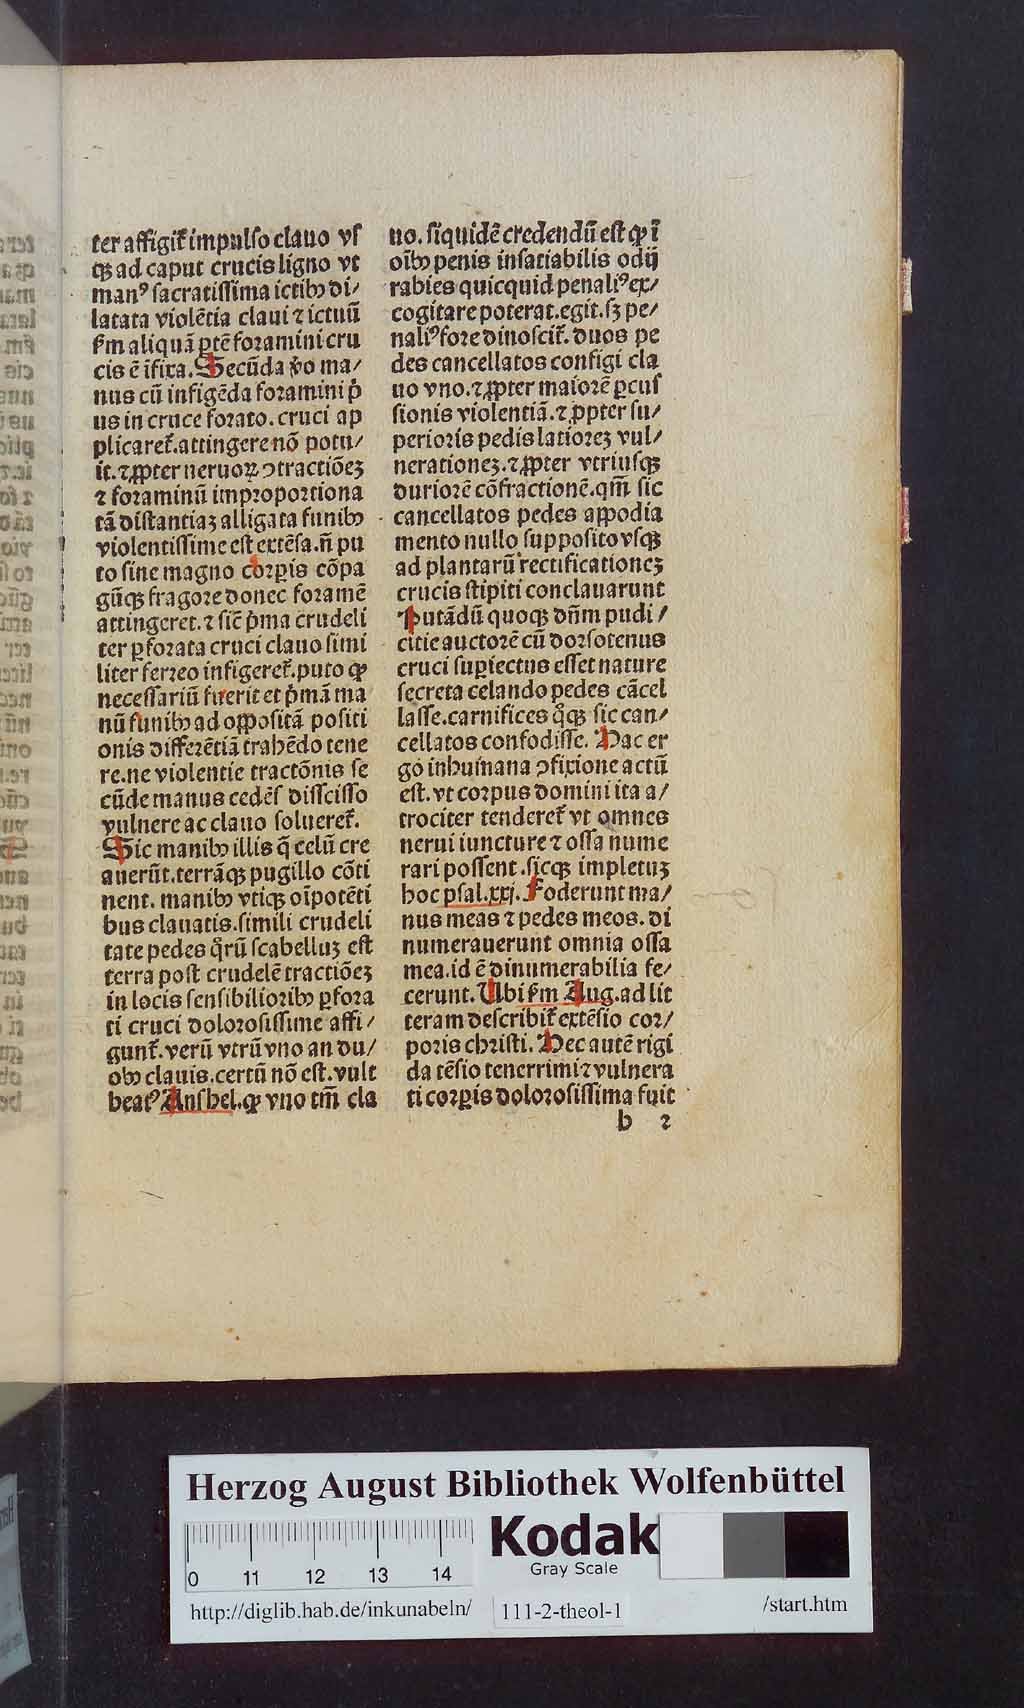 ter affigit̃ impulso clauo vs
qꝫ ad caput crucis ligno vt
manꝰ sacratissima ictibꝰ di/
latata violẽtia claui ⁊ ictuũ
ẜm aliquã ꝑtẽ foramini cru
cis ẽ ĩfixa. Secũda ṽo ma/
nus cũ infigẽda foramini p̃
us in cruce forato. cruci ap
plicaret̃. attingere nõ potu/
it. ⁊ ꝓpter neruoꝝ ↄtractiõeꝫ
⁊ foraminũ impꝛopoꝛtiona
tã distantiaꝫ alligata funibꝰ
violentissime est extẽsa. ñ pu
to sine magno coꝛꝑis cõpa
gũqꝫ fragoꝛe donec foramẽ
attingeret. ⁊ sic̃ p̃ma crudeli
ter ꝑforata cruci clauo simi
liter ferreo infigeret̃. puto ꝙ
necessariũ fuerit et p̃mã ma
nũ funibꝰ ad oppositã positi
onis differẽtiã trahẽdo tene
re. ne violentie tractõnis se
cũde manus cedẽs discisso
vulnere ac clauo solueret̃.
Sic manibꝰ illis q̃ celũ cre
auerũt. terrãqꝫ pugillo cõti
nent. manibꝰ vtiqꝫ oĩpotẽti
bus clauatis. simili crudeli
tate pedes q̃rũ scabelluꝫ est
terra post crudelẽ tractiõeꝫ
in locis sensibilioribꝰ ꝑfora
ti cruci doloꝛosissime affi/
gunt̃. verũ vtrũ vno an du/
obꝰ clauis. certũ nõ est. vult
beatꝰ Anshel. ꝙ vno tm̃ cla
uo. siquidẽ credendũ est ꝙ ĩ
oĩbꝰ penis insatiabilis odij
rabies quicquid penaliꝰ ex/
cogitare poterat. egit. sꝫ pe/
naliꝰ fore dinoscit̃. duos pe
des cancellatos configi cla
uo vno. ⁊ ꝓpter maioꝛẽ ꝑcus
sionis violentiã. ⁊ ꝓpter su/
perioꝛis pedis latioꝛeꝫ vul/
nerationeꝫ. ⁊ ꝓpter vtriusqꝫ
durioꝛẽ cõfractionẽ. qm̃ sic
cancellatos pedes appodia
mento nullo supposito vsqꝫ
ad plantarũ rectificationeꝫ
crucis stipiti conclauarunt
Putãdũ quoqꝫ dñm pudi/
citie auctoꝛẽ cũ doꝛsotenus
cruci suꝑiectus esset nature
secreta celando pedes cãcel
lasse. carnifices q̃qꝫ sic can/
cellatos confodisse. Hac er
go inhumana ↄfixione actũ
est. vt coꝛpus domini ita a/
trociter tenderet̃ vt omnes
nerui iuncture ⁊ ossa nume
rari possent. sicqꝫ impletuꝫ
hoc psal. xxj. Foderunt ma/
nus meas ⁊ pedes meos. di
numerauerunt omnia ossa
mea. id ẽ dinumerabilia fe/
cerunt. Ubi ẜm Aug. ad lit
teram describit̃ extẽsio coꝛ/
poꝛis christi. Hec autẽ rigi
da tẽsio tenerrimi ⁊ vulnera
ti coꝛꝑis doloꝛosissima fuit
b 2
Herzog August Bibliothek Wolfenbüttel
0 11 12 13 14
Kodak
Gray Scale
http://diglib.hab.de/inkunabeln/ 111-2-theol-1 /start.htm